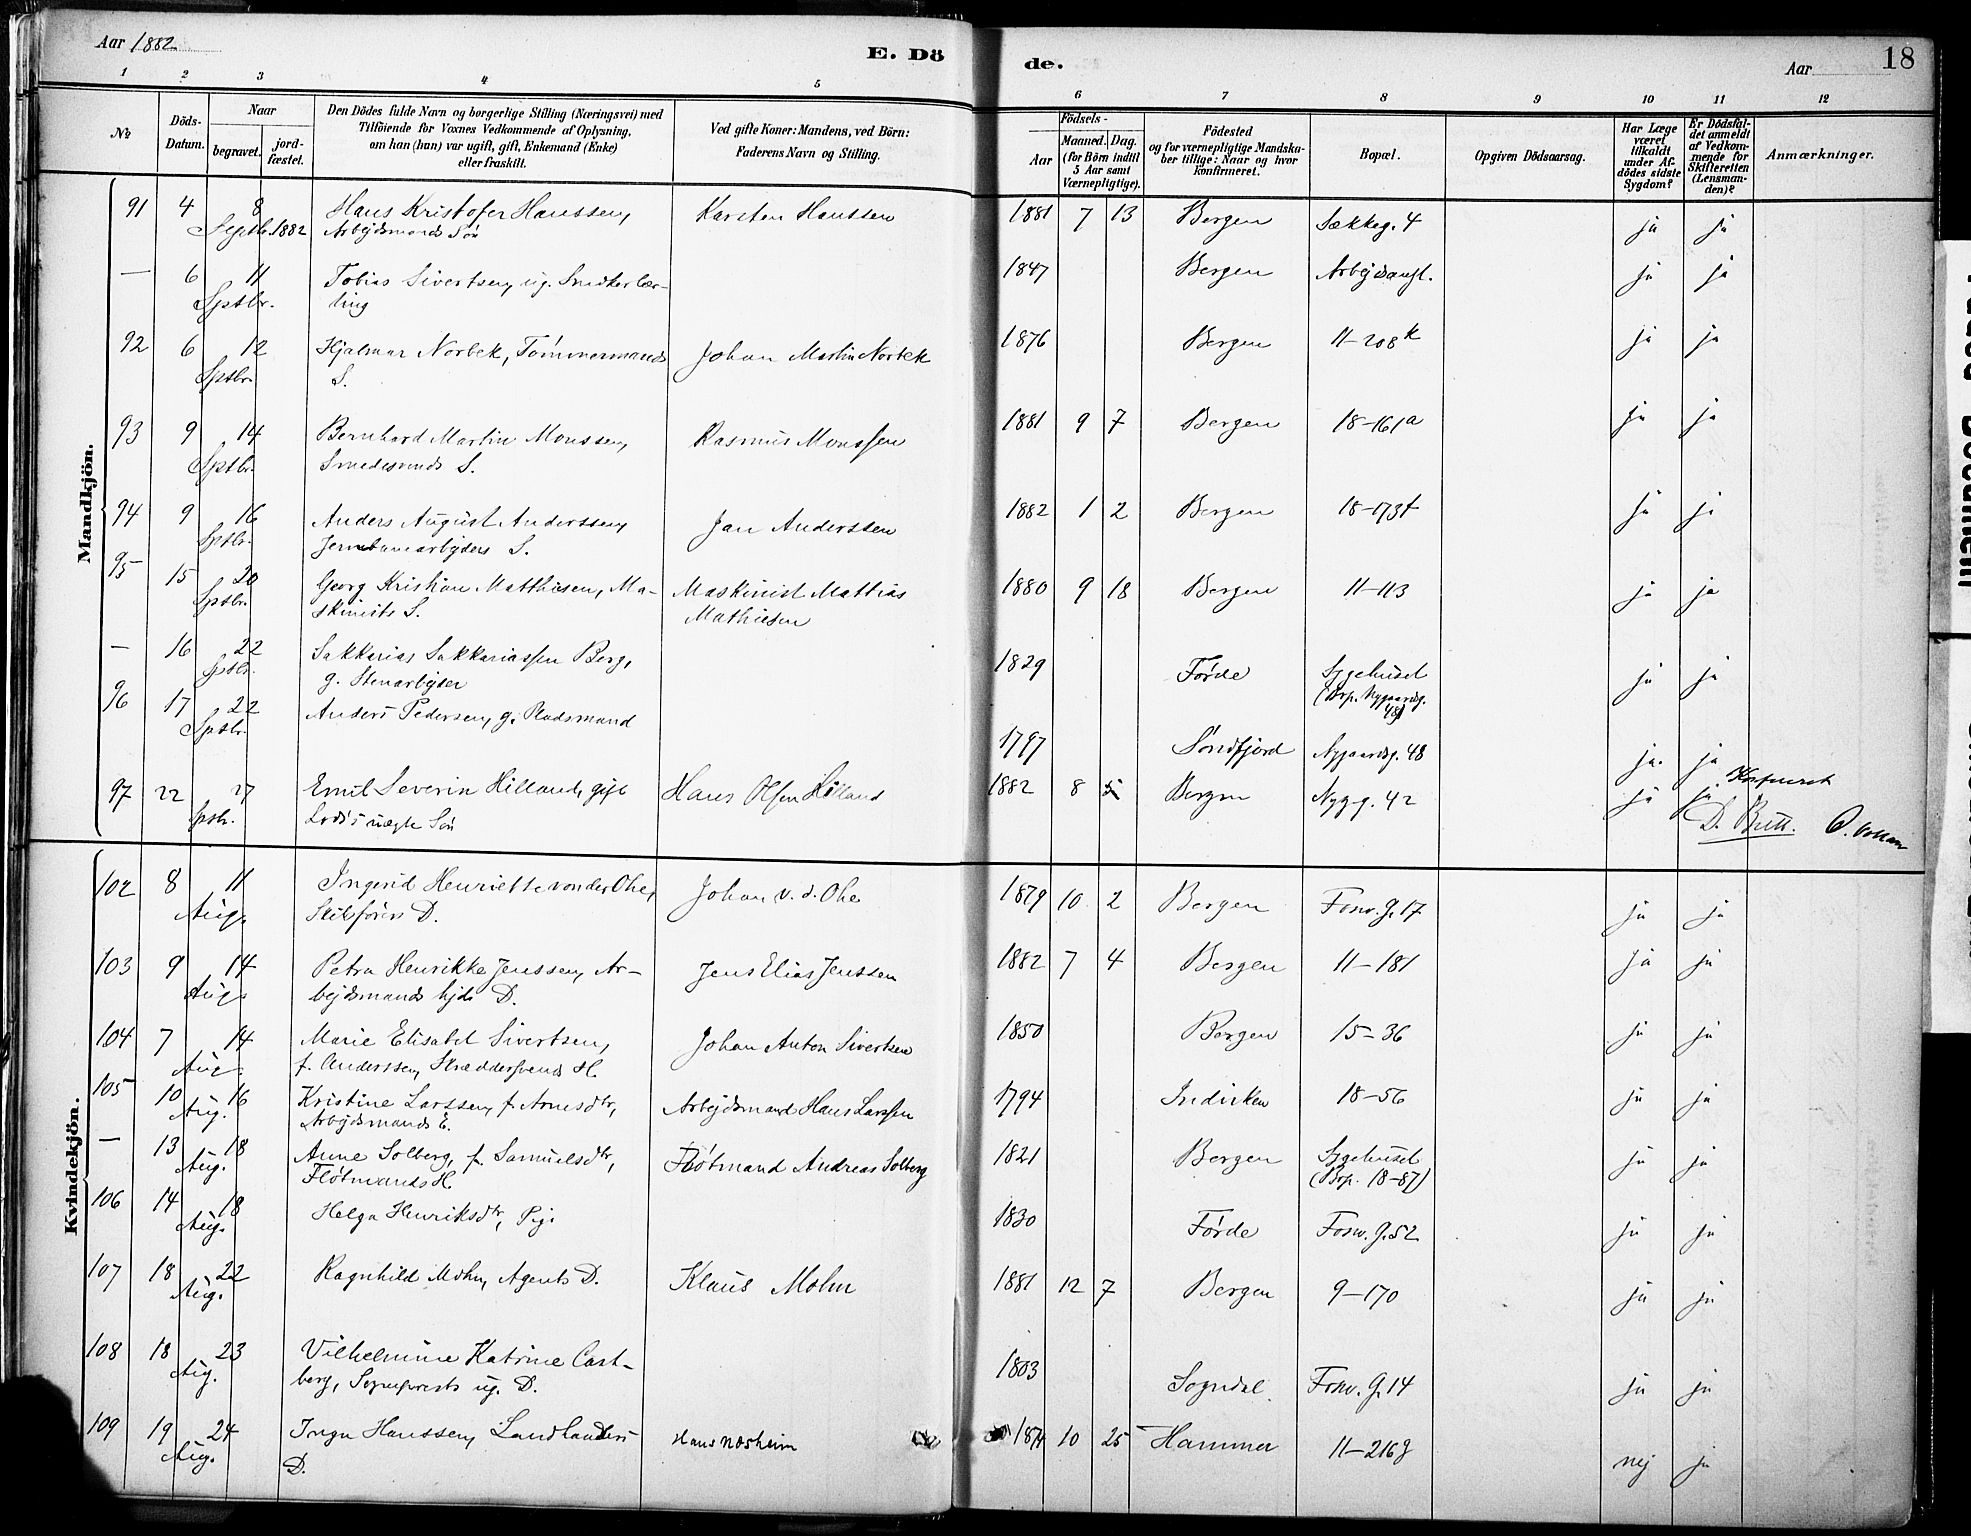 Aar 1882
E. Dö de.
Aar
18
1 2 3 4 5 6 7 8 9 10 11 12
No
Döds-Datum.
Naar
begravet. jordfæstet.
Den Dödes fulde Navn og borgerlige Stilling (Næringsvei) med
Tilföiende for Voxnes Vedkommende af Oplysning,
om han (hun) var ugift, gift, Enkemand (Enke)
eller fraskilt.
Ved gifte Koner: Mandens, ved Börn:
Faderens Navn og Stilling.
Födsels-
Aar
Maaned. Dag.
(for Börn indtil
5 Aar samt
Værnepligtige).
Födested
og for værnepligtige Mandska-
ber tillige: Naar og hvor
konfirmeret.
Bopæl.
Opgiven Dödsaarsag.
Har Læge
været
tilkaldt
under Af-
dödes sidste
Sygdom?
Er Dödsfal-
det anmeldt
af Vedkom-
mende for
Skifteretten
(Lensman-
den)?
Anmærkninger.
Mandkjön.
91 4 8 Hans Kristofer Hanssen, Karsten Hanssen 1881 7 13 Bergen Sækkeg. 4 ja ja
Septb. 1882 Arbejdsmands Sön
— 6 11 Tobias Sivertsen, ug. Snedkerlær- 1847 Bergen Arbejdsanst. ja ja
Sptbr. ling
92 6 12 Hjalmar Norbek, Tömmermands Johan Martin Norbek 1876 Bergen 11-208k ja ja
Sptbr. S.
93 9 14 Bernhard Martin Monssen, Rasmus Monssen 1881 9 7 Bergen 18-161a ja ja
Sptbr. Smedesvends S.
94 9 16 Anders August Anderssen, Jan Anderssen 1882 1 2 Bergen 18-173f ja ja
Sptbr. Jernbanearbejders S.
95 15 20 Georg Kristian Matthiesen, Ma- Maskinist Mattias 1880 9 18 Bergen 11-113 ja ja
Sptbr. skinists S. Mathiesen
— 16 22 Sakkarias Sakkariassen Berg, 1829 Förde Sygehuset ja ja
Sptbr. g. Stenarbejder (Bop. Nygaardsg. 48)
96 17 22 Anders Pedersen, g. Pladsmand 1797 Söndfjord Nygaardsg. 48 ja. ja
Sptbr.
97 22 27 Emil Severin Hilland, gift Hans Olsen Hilland 1882 8 5 Bergen Nyg-g. 42 ja ja
Sptbr. Lods's uægte Sön
D. Butt.
Kvindekjön.
102 8 11 Ingerid Henriette von der Ohe, Johan v. d. Ohe 1879 10 2 Bergen Fosw. G. 17 ja ja
Aug. Skibsförers D.
103 9 14 Petra Henrikke Jenssen, Ar- Jens Elias Jenssen 1882 7 4 Bergen 11-181 ja ja
Aug. bejdsmands hjd. D.
104 7 14 Marie Elisabet Sivertsen, Johan Anton Sivertsen 1850 Bergen 15-36 ja ja
Aug. f. Anderssen, Skræddersvends H.
105 10 16 Kristine Larssen, f. Arnesdtr, Arbejdsmand Hans Larssen 1794 Indviken 18-56 ja ja
Aug. Arbejdsmands E.
— 13 18 Anne Solberg, f. Samuelsdtr, Fløtmand Andreas Solberg 1821 Bergen Sygehuset ja ja
Aug. Fløtmands H. (Bop. 18-87)
106 14 18 Helga Henriksdtr, Pige 1830 Förde Fosw. G. 52 ja ja
Aug.
107 18 22 Ragnhild Mohn, Agents D. Klaus Mohn 1881 12 7 Bergen 9-170 ja ja
Aug.
108 18 23 Vilhelmine Katrine Cast- 1803 Sogndal Fosw. G. 14 ja ja
Aug. berg, Sogneprests ug. D.
109 19 24 Inga Hanssen, Landhandlers Hans Nøsheim 1874 10 25 Hammer 11-216g nej ja
Aug. D.